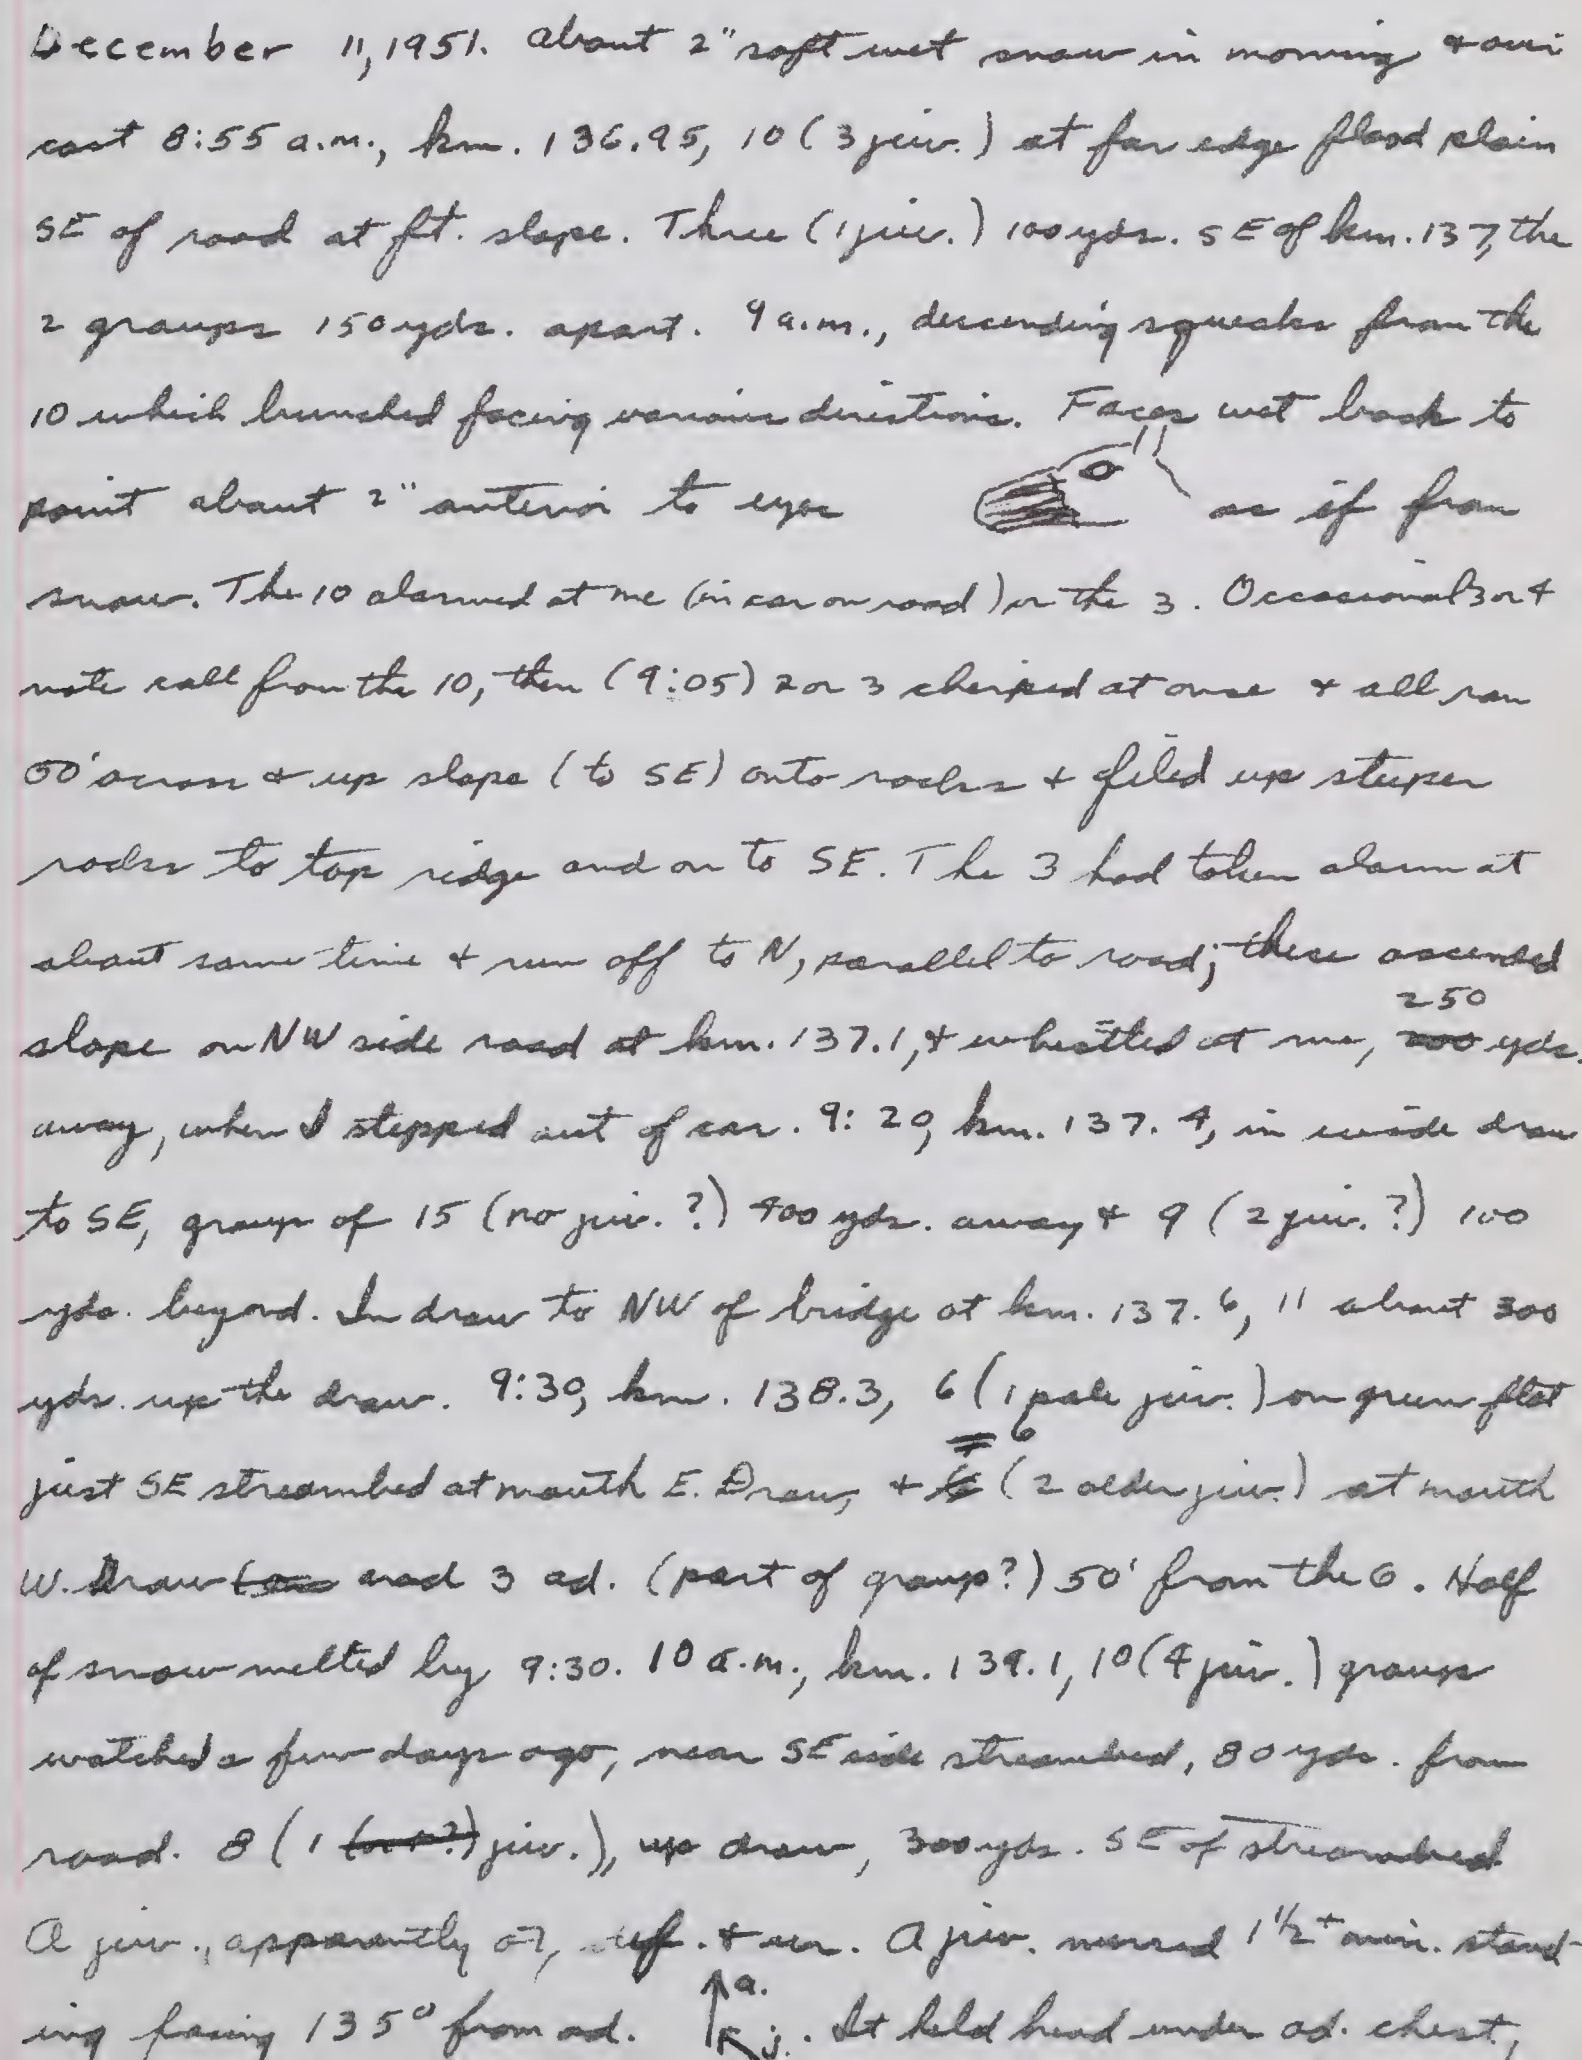 December 11, 1951. About 2" soft wet snow in morning & over
cast 8:55 a.m., km. 136.95, 10 (3 juv.) at far edge flood plain
SE of road at ft. slope. Three (1 juv.) 100 yds. SE of km. 137, the
2 groups 150 yds. apart. 9 a.m., descending squeaks from the
10 which bunched facing various directions. Faces wet back to
point about 2" anterior to eyes as if from
snow. The 10 alarmed at me (in car on road) or the 3. Occasional 3 or 4
note call from the 10, then (9:05) 2 or 3 chirped at once & all ran
50' across & up slope (to SE) onto rocks & filed up steeper
rocks to top ridge and on to SE. The 3 had taken alarm at
about same time & run off to N, parallel to road; these ascended
slope on NW side road at km. 137.1, & whistled at me, 250 yds.
away, when I stepped out of car. 9:20, km. 137.4, in wide draw
to SE, group of 15 (no juv.?) 400 yds. away & 9 (2 juv.?) 100
yds. beyond. In draw to NW of bridge at km. 137.6, 11 about 300
yds. up the draw. 9:30, km. 138.3, 6 (1 pale juv.) on green flat
just SE streambed at mouth E. Draw, & 6 (2 older juv.) at mouth
W. Draw and 3 ad. (part of group?) 50' from the 6. Half
of snow melted by 9:30. 10 a.m., km. 139.1, 10 (4 juv.) group
watched a few days ago, near SE side streambed, 80 yds. from
road. 8 (1 juv.), up draw, 300 yds. SE of streambed
A juv., apparently ♂, def. & ur. A juv. nursed 1 1/2+ min. stand-
ing facing 135° from ad. a. j. It held head under ad. chest,